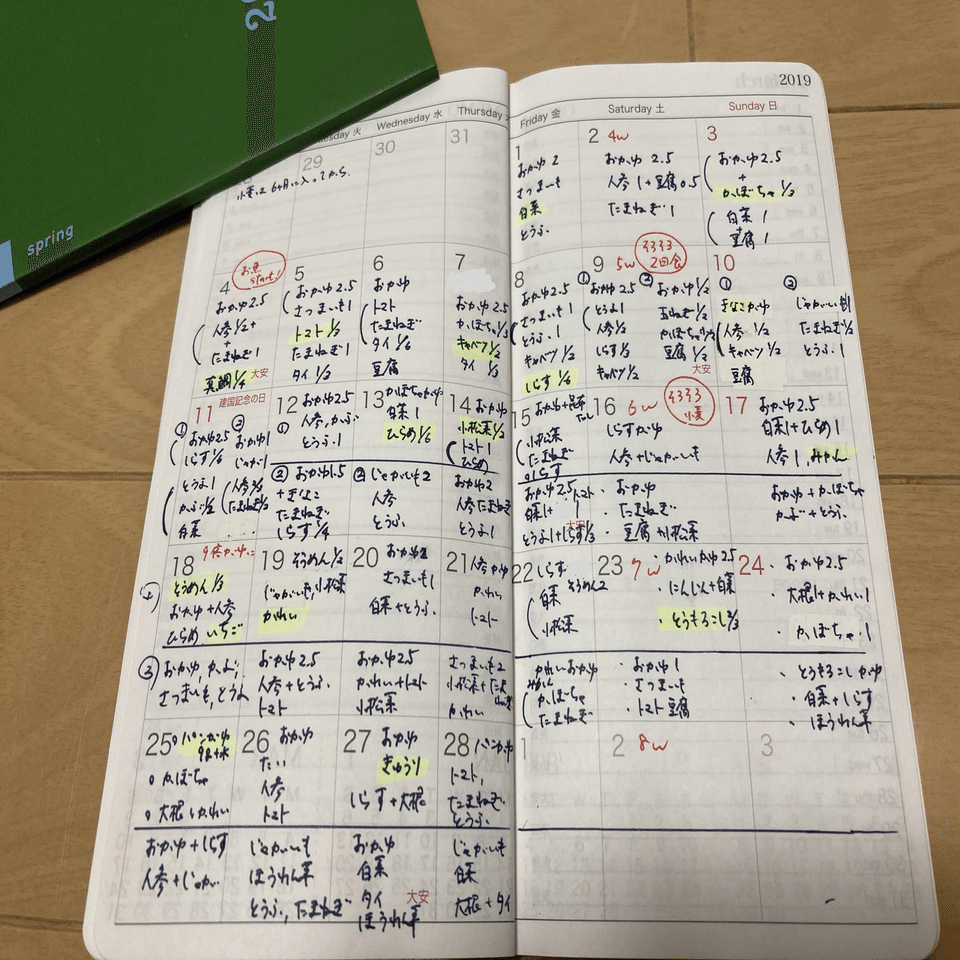 spring
2019
Tuesday 火
Wednesday 水
Thursday
Friday 金
Saturday 土
Sunday 日
29
30
31
小麦は6ヶ月に入ってから。
1
おかゆ2
さつまいも
白菜
とうふ
2
4w
おかゆ2.5
人参1+豆腐0.5
たまねぎ1
3
おかゆ2.5
+
かぼちゃ1/2
白菜1
豆腐1
お魚
start!
4
おかゆ2.5
人参1/2+
+
たまねぎ1
真鯛1/4
大安
5
おかゆ2.5
さつまいも1
トマト1/3
たまねぎ1
タイ1/3
6
おかゆ
トマト
たまねぎ
タイ1/6
豆腐
7
おかゆ2.5
かぼちゃ1/3
キャベツ1/2
タイ1/3
8
おかゆ2.5
さつまいも1
とうふ1
キャベツ1/2
しらす1/6
9
5w
そろそろ
2回食
①
おかゆ2.5
とうふ1
人参1/2
しらす1/2
キャベツ1/2
②
おかゆ1/2
玉ねぎ1/2
かぼちゃ1/2
豆腐1/2
大安
10
①
きなこかゆ
人参1/2
キャベツ1/2
豆腐
②
じゃがいも
たまねぎ1/2
とうふ1
11
建国記念の日
①
おかゆ2.5
しらす1/6
とうふ1
かぶ1/2
白菜
②
おかゆ1
じゃが1
人参1/2
たまねぎ1/2
12
①
おかゆ2.5
人参、かぶ
とうふ1
②
おかゆ1.5
+きなこ
たまねぎ
しらす1/4
13
かぼちゃかゆ
白菜1
ひらめ1/6
②
じゃがいも2
人参
とうふ
14
おかゆ
小松菜1/2
トマト1
ひらめ
おかゆ2
人参たまねぎ
とうふ1
15
おかゆ+昆布だし
小松菜
たまねぎ
しらす
おかゆ2.5
トマト1
白菜1+
大安
とうふ1+しらす1/3
16
6w
そろそろ
小麦
しらすがゆ
人参+じゃがいも
・おかゆ
・たまねぎ
・豆腐 小松菜
17
おかゆ2.5
白菜1+ひらめ1
人参1、みかん
おかゆ+かぼちゃ
かぶ+とうふ
18
そうめん1/3
おかゆ+人参
ひらめ いちご
③
おかゆ、かぶ、
さつまいも、とうふ
19
そうめん1/2
じゃがいも、小松菜
かれい
おかゆ2.5
人参+とうふ
トマト
20
おかゆ2
さつまいも1
白菜+とうふ
おかゆ2.5
かれい+トマト
小松菜
21
人参かゆ
かれい
トマト
さつまいも2
小松菜+たまねぎ
かれい
22
しらす
白菜
そうめん2
小松菜
かれいおかゆ
みかん
かぼちゃ
たまねぎ
23
7w
・かれいかゆ2.5
・にんじん+白菜
・とうもろこし2/3
・おかゆ1
・さつまいも
・トマト豆腐
24
・おかゆ2.5
・大根1+かれい1
・かぼちゃ1
・とうもろこしかゆ
・白菜+しらす
・ほうれん草
25
パンがゆ
かぼちゃ
大根+かれい
おかゆ+しらす
人参+じゃがい
26
おかゆ
たい
人参
トマト
じゃがいも
ほうれん草
とうふ、たまねぎ
27
おかゆ
きゅうり
しらす+大根
おかゆ
白菜
タイ
大安
ほうれん草
28
パンかゆ
トマト、
たまねぎ
とうふ
じゃがいも
白菜
大根+タイ
1
2
8w
3